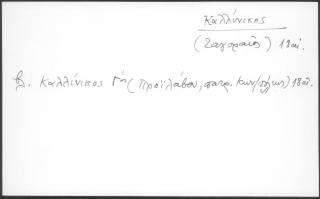 Καλλίνικος
(Ζαγοραῖος) 18αἰ.
βλ. Καλλίνικος Γ΄ (Προϊλάβου, πατρ. Κων/πόλεως) 18αἰ.